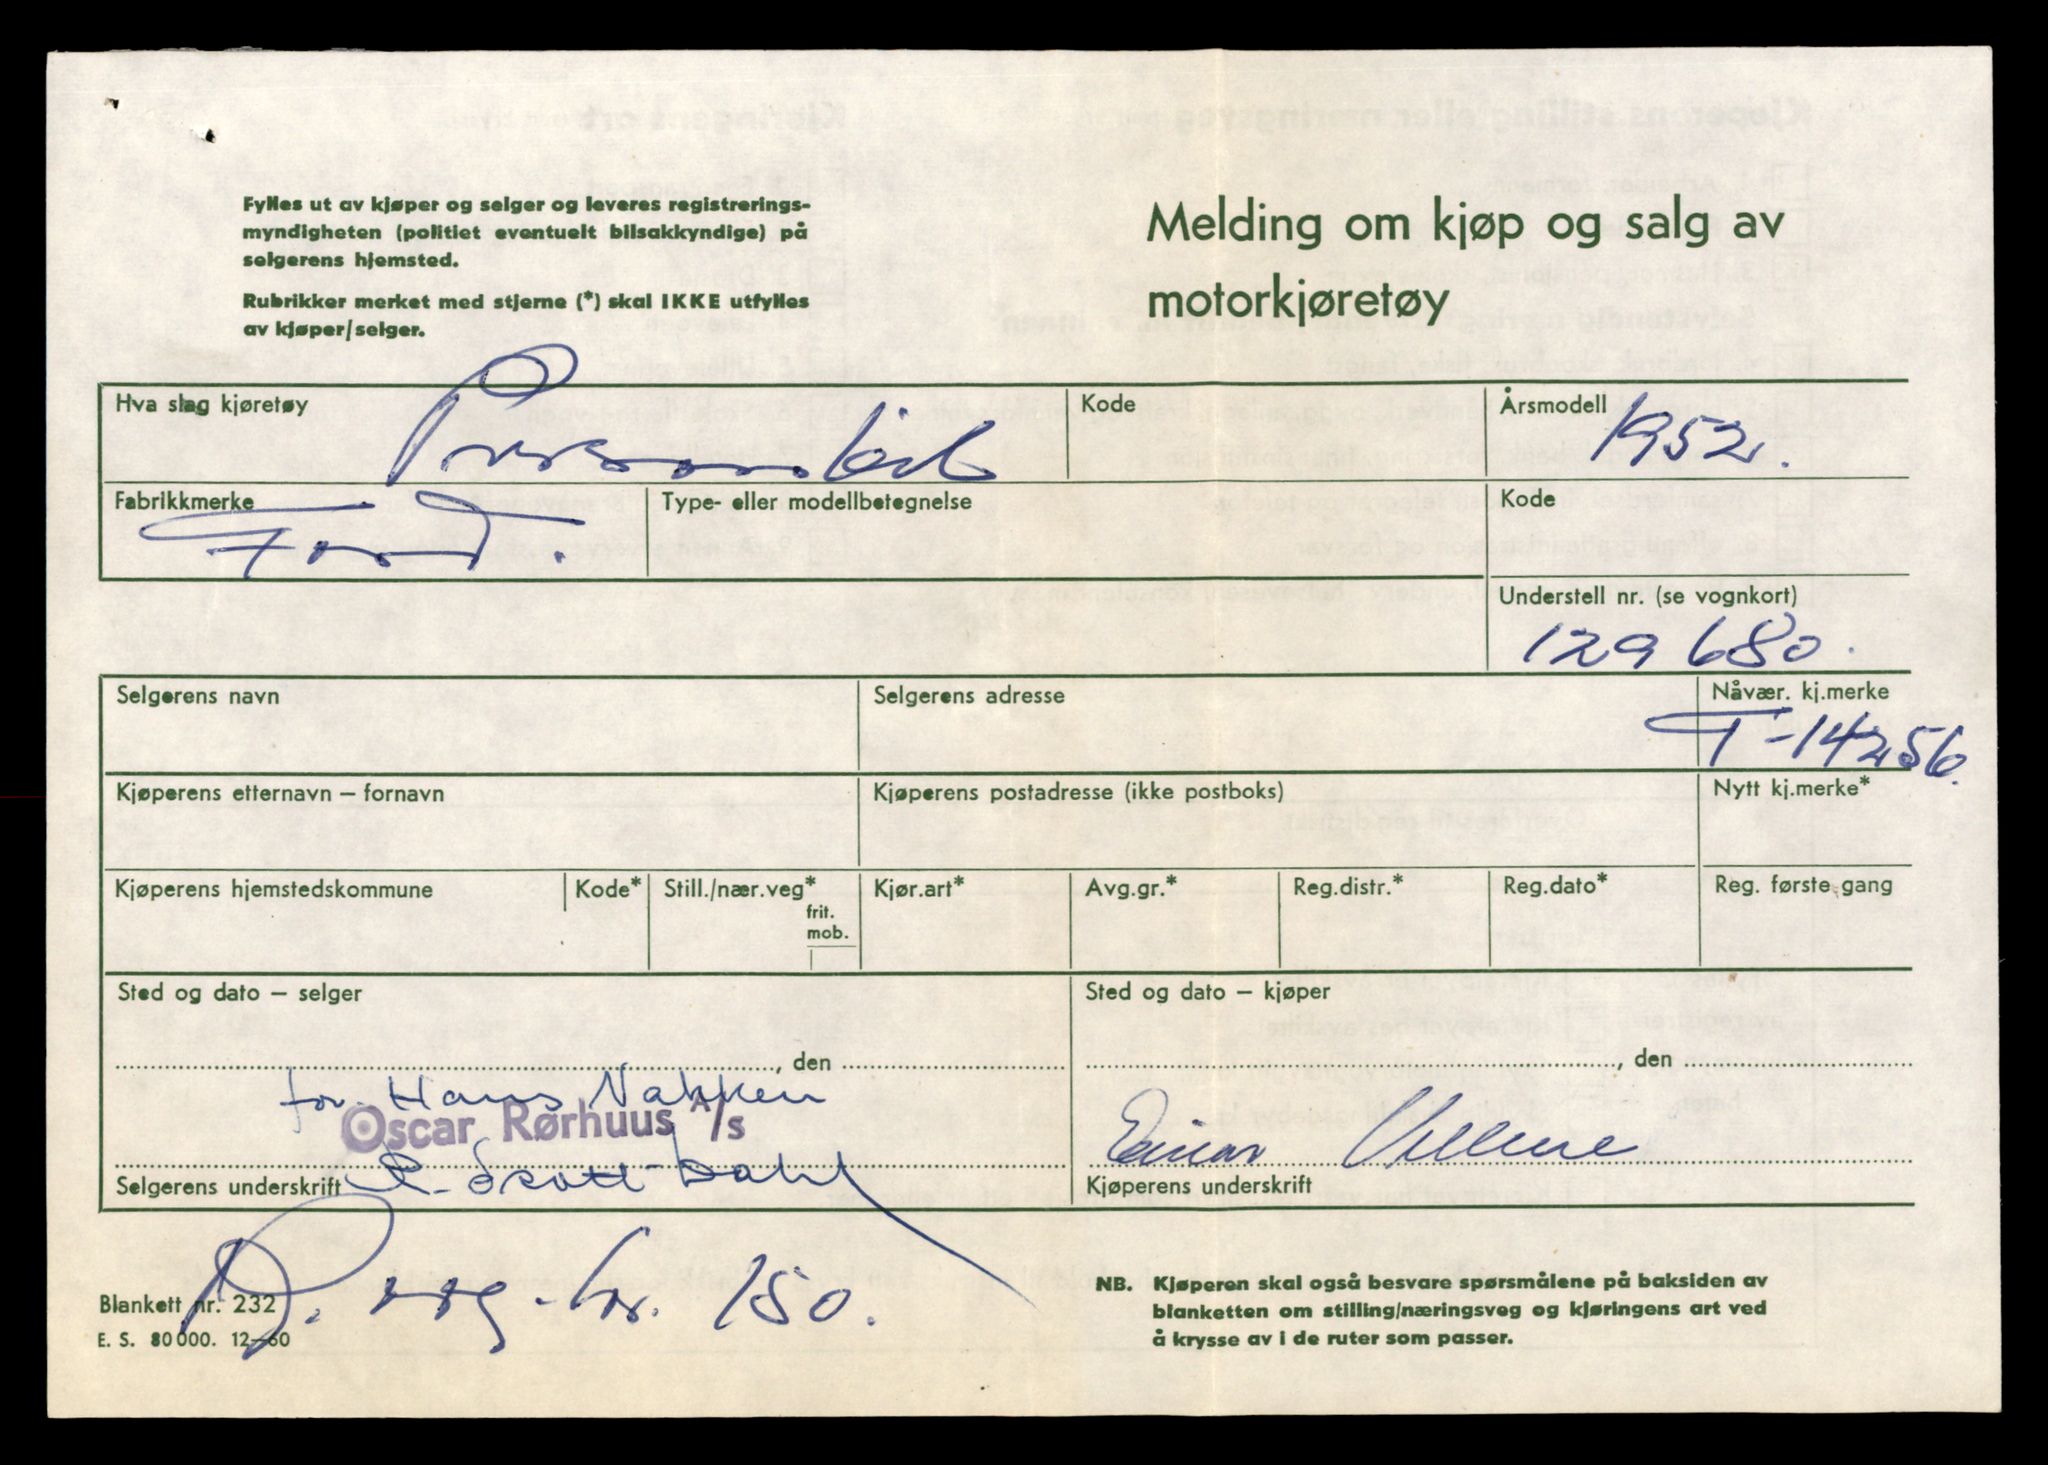 Fylles ut av kjøper og selger og leveres registrerings-
myndigheten (politiet eventuelt bilsakkyndige) på
selgerens hjemsted.
Rubrikker merket med stjerne (*) skal IKKE utfylles
av kjøper/selger.
Melding om kjøp og salg av
motorkjøretøy
Hva slag kjøretøy
Personbil
Kode
Årsmodell
1952.
Fabrikkmerke
Ford.
Type- eller modellbetegnelse
Kode
Understell nr. (se vognkort)
129680.
Selgerens navn
Selgerens adresse
Nåvær. kj.merke
T-14256.
Kjøperens etternavn – fornavn
Kjøperens postadresse (ikke postboks)
Nytt kj.merke*
Kjøperens hjemstedskommune
Kode*
Still./nær.veg*
frit.
mob.
Kjør.art*
Avg.gr.*
Reg.distr.*
Reg.dato*
Reg. første gang
Sted og dato – selger
, den
for Hans Nakken
Oscar Rørhuus A/S
Selgerens underskrift
Sted og dato – kjøper
, den
Einar
Kjøperens underskrift
kr. 150.
Blankett nr. 232
E. S. 80 000. 12–60
NB. Kjøperen skal også besvare spørsmålene på baksiden av
blanketten om stilling/næringsveg og kjøringens art ved
å krysse av i de ruter som passer.